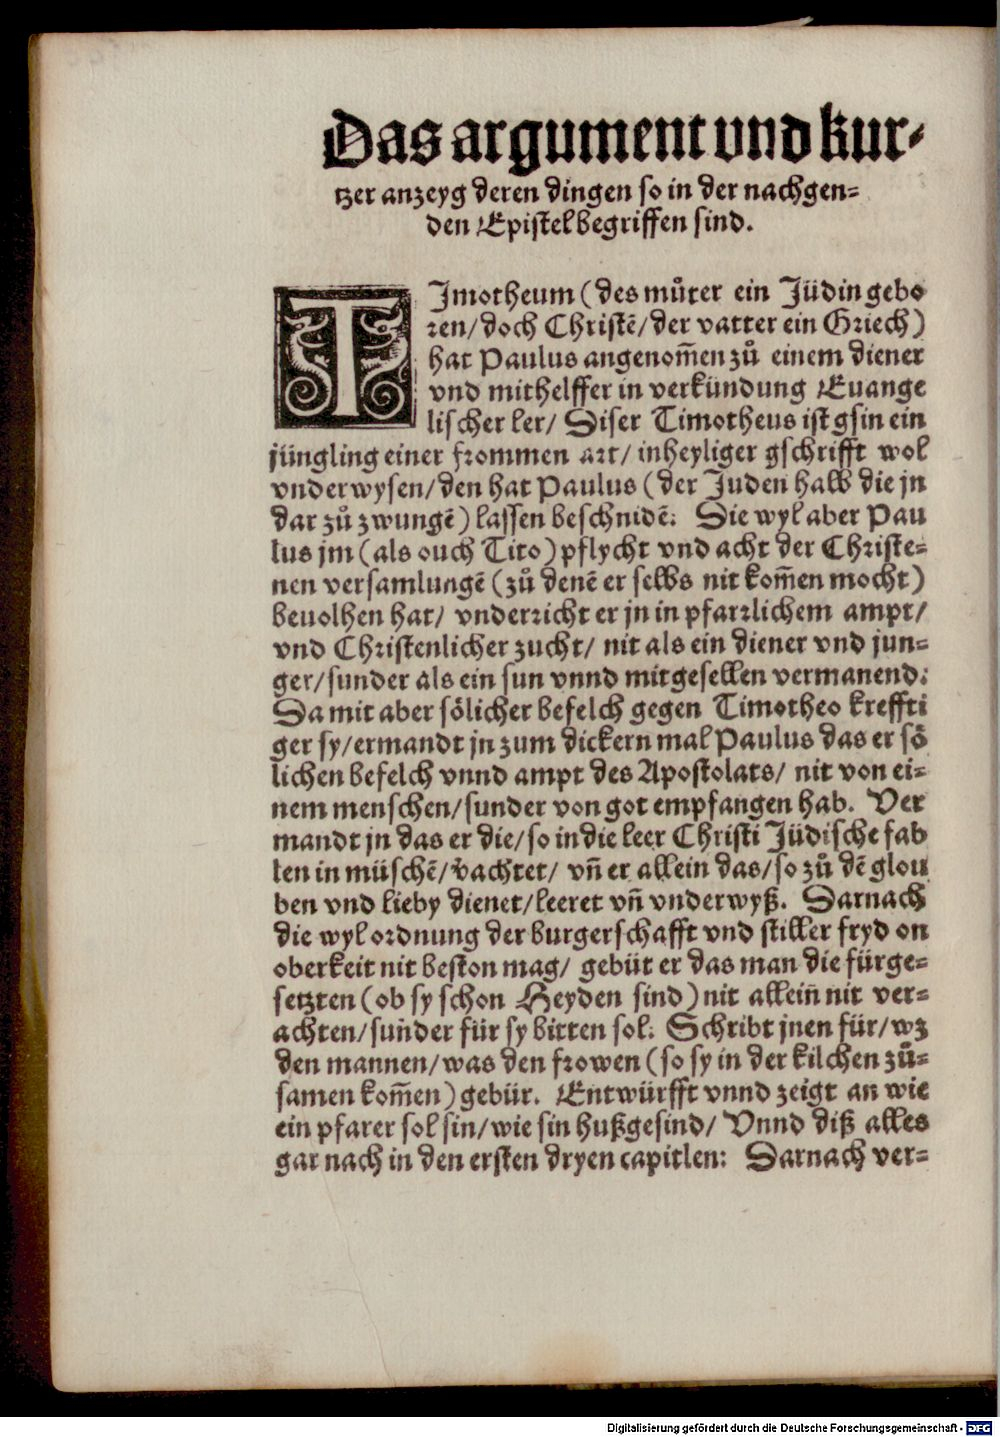 Das argument vnd kur-
tzer anzeyg deren dingen so in der nachgen=
den Epistel begriffen sind.
TImotheum (des můter ein Jüdin gebo
ren/ doch Christē/ der vatter ein Griech)
hat Paulus angenom̄en zů einem diener
vnd mithelffer in verkündung Euange
lischer ler/ Diser Timotheus ist gsin ein
jüngling einer frommen art/ in heyliger gschrifft wol
vnderwysen/ den hat Paulus (der Juden halb die jn
dar zů zwungē) lassen beschnidē: Die wyl aber Pau
lus jm (als ouch Tito) pflycht vnd acht der Christe=
nen versamlungē (zů denē er selbs nit kom̄en mocht)
beuolhen hat/ vnderricht er jn in pfarrlichem ampt/
vnd Christenlicher zucht/ nit als ein diener vnd jun=
ger/ sunder als ein sun vnnd mitgesellen vermanend:
Da mit aber sölicher befelch gegen Timotheo kreffti
ger sy/ ermandt jn zum dickern mal Paulus das er sö
lichen befelch vnnd ampt des Apostolats/ nit von ei=
nem menschen/ sunder von got empfangen hab. Ver
mandt jn das er die/ so in die leer Christi Jüdische fab
len in müschē/ v̈achtet/ vn̄ er allein das/ so zů dē glou
ben vnd lieby dienet/ leeret vn̄ vnderwyß. Darnach
die wyl ordnung der burgerschafft vnd stiller fryd on
oberkeit nit beston mag/ gebüt er das man die fürge=
setzten (ob sy schon Heyden sind) nit allein̄ nit ver=
achten/ sunder für sy bitten sol: Schribt jnen für/ wz
den mannen/ was den frowen (so sy in der kilchen zů=
samen kom̄en) gebür. Entwürfft vnnd zeigt an wie
ein pfarer sol sin/ wie sin hußgesind/ Vnnd diß alles
gar nach in den ersten dryen capitlen: Darnach ver=
Digitalisierung gefördert durch die Deutsche Forschungsgemeinschaft - DFG